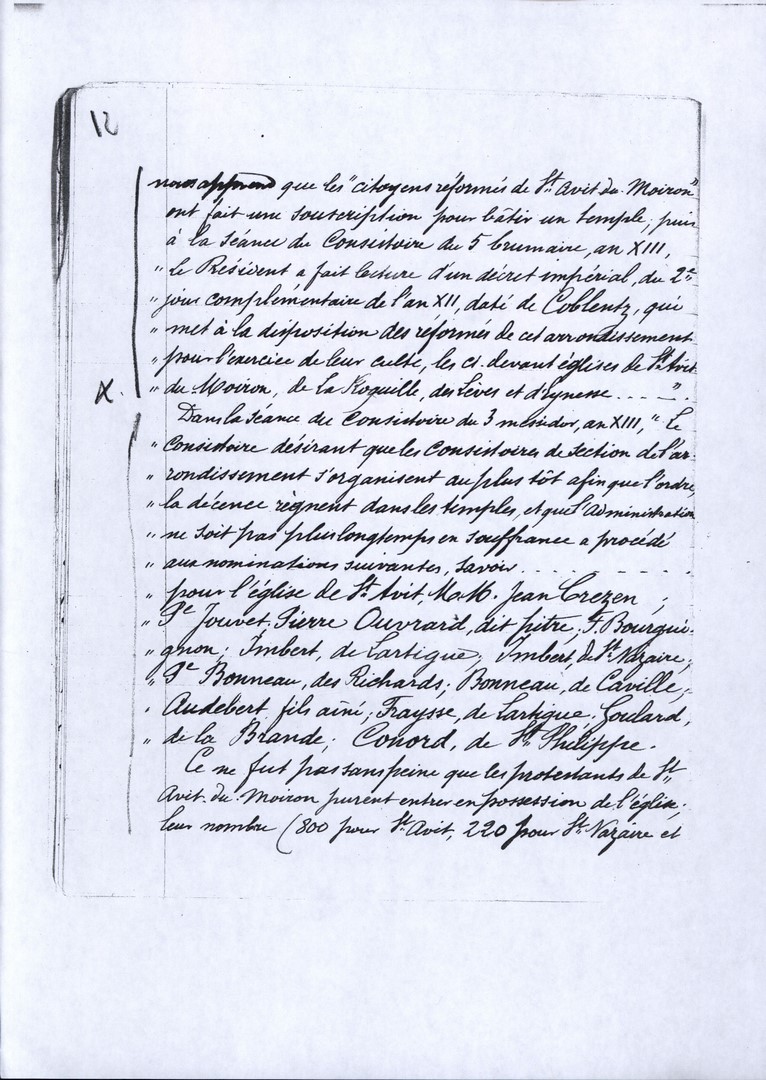 12
nous apprend que les "citoyens réformés de St. Avit du Moiron"
ont fait une souscription pour bâtir un temple; puis
à la séance du Consistoire du 5 brumaire, an XIII,
" Le Président a fait lecture d'un décret impérial, du 2e
" jour complémentaire de l'an XII, daté de Coblentz, qui
" met à la disposition des réformés de cet arrondissement
" pour l'exercice de leur culte, les ci-devant églises de St. Avit
X. " du Moiron, de la Roquille, des Lèves et d'Eynesse. . . — . "
Dans la séance du Consistoire du 3 messidor, an XIII, " Le
" Consistoire désirant que les Consistoires de section de l'ar-
" rondissement s'organisent au plus tôt afin que l'ordre,
" la décence règnent dans les temples, et que l'Administration
" ne soit pas plus longtemps en souffrance a procédé
" aux nominations suivantes, savoir . . . . . . . .
" pour l'église de St. Avit, M.M. Jean Crezen ;
" Pe Jouvet; Pierre Ouvrard, dit pitre; F. Bourgui-
" gnon; Imbert, de Lartigue; Imbert, de St. Nazaire;
" Pe Bonneau, des Richards; Bonneau, de Caville;
" Audebert fils aîné; Fraysse, de Lartigue; Goulard,
" de la Brande; Conord, de St. Philippe.
Ce ne fut pas sans peine que les protestants de St.
Avit-du-Moiron purent entrer en possession de l'église;
leur nombre (800 pour St. Avit, 220 pour St. Nazaire et